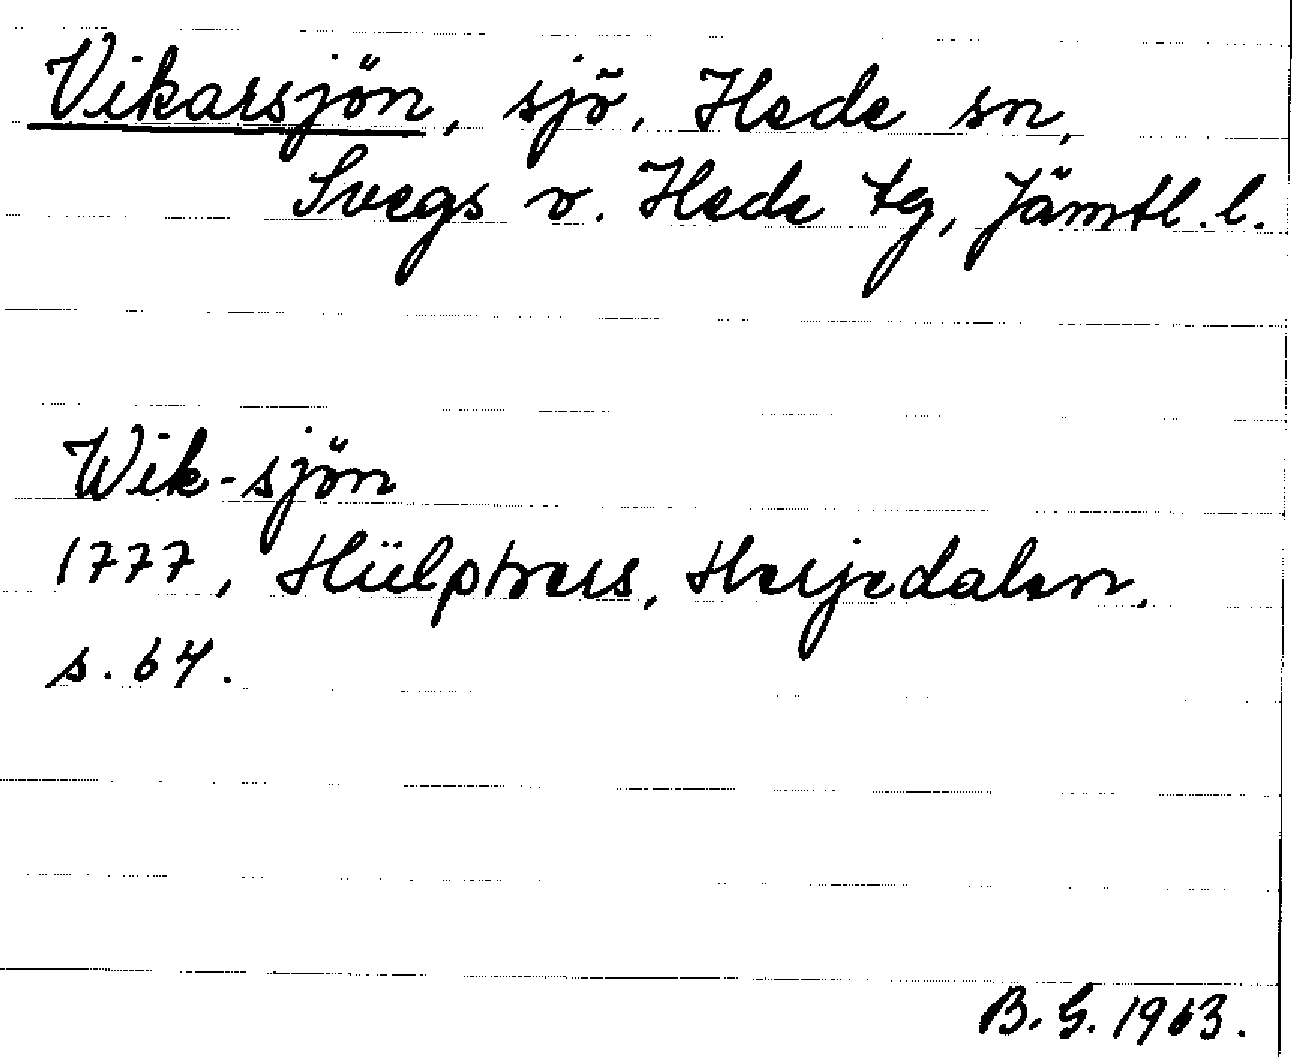 Vikarsjön, sjö, Hede sn,
Svegs o. Hede tg, Jämtl. l.
Wik-sjön
1777, Hülphers, Herjedalen,
s. 64.
B. G. 1963.